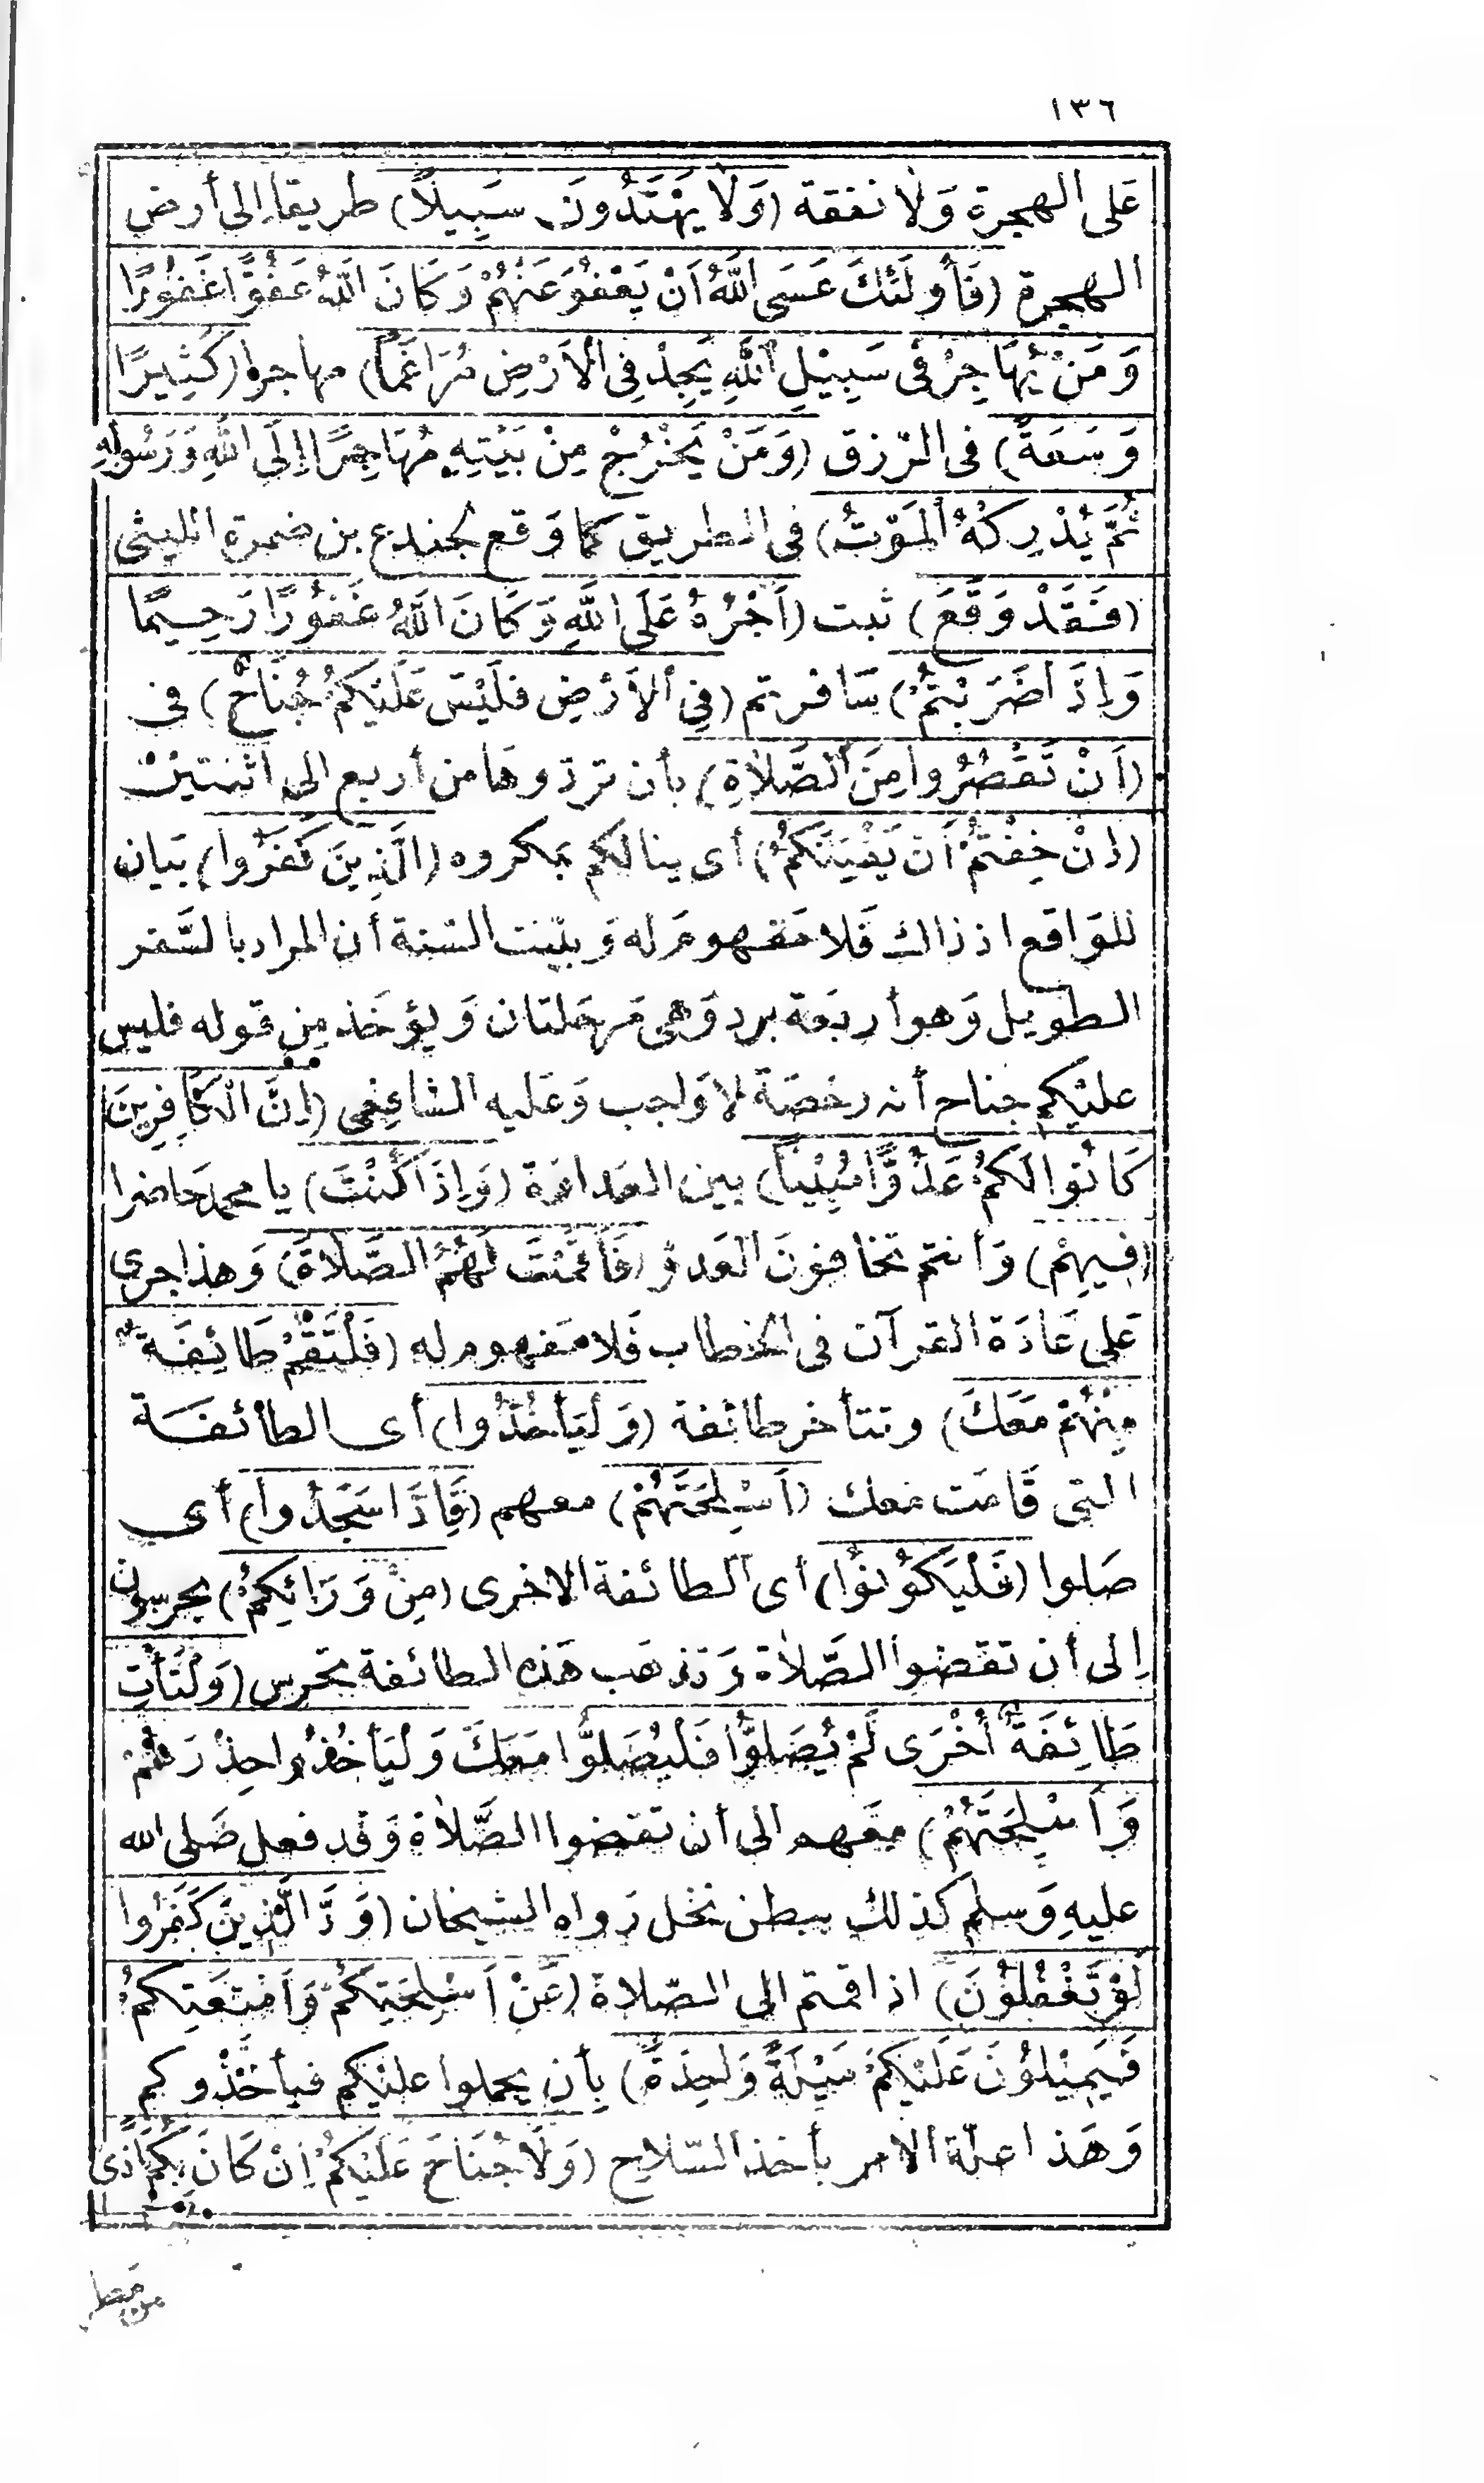 ١٣٦
عَلى الهجرة وَلا نفقة (وَلَا يَهْتَدُونَ سَبِيلاً) طريقا إلى أرض
الهجرة (فَأُولَئِكَ عَسَى اللَّهُ أَنْ يَعْفُوَ عَنْهُمْ وَكَانَ اللَّهُ عَفُوًّا غَفُورًا
وَمَنْ يُهَاجِرْ فِي سَبِيْلِ اللَّهِ يَجِدْ فِي الْاَرْضِ مُرَاغَمًا) مهاجرا (كَثِيرًا
وَسَعَةً) فى الرّزق (وَمَنْ يَخْرُجْ مِنْ بَيْتِهِ مُهَاجِرًا إِلَى اللَّهِ وَرَسُولِهِ
ثُمَّ يُدْرِكْهُ الْمَوْتُ) فى الطريق كما وَقع لجندع بن ضمرة الليثى
(فَقَدْ وَقَعَ) ثبت (اَجْرُهُ عَلَى اللَّهِ وَكَانَ اللَّهُ غَفُورًا رَحِيمًا
وَاِذَا ضَرَبْتُمْ) سَافرتم (فِي الْاَرْضِ فَلَيْسَ عَلَيْكُمْ جُنَاحٌ) فى
(اَنْ تَقْصُرُوا مِنَ الصَّلَاةِ) بأن تردّوهَا من أربع الى اثنتيْن
(اِنْ خِفْتُمْ أَنْ يَفْتِنَكُمْ) أى ينالكم بمكروه (الَّذِينَ كَفَرُوا) بَيان
للوَاقع اذ ذاك فَلا مَفهومَ له وَبيّنت السّنة أن المراد بالسَّفر
الطويل وَهو أربَعة برد وَهى مَرحَلتان وَيؤخَذ مِن قوله فليس
عليْكم جناح أنه رخصَة لا وَاجب وَعَليه الشافِعى (اِنَّ الْكَافِرِينَ
كَانُوا لَكُمْ عَدُوًّا مُبِيْنًا) بين العَداوَة (وَاِذَا كُنْتَ) يا محمد حَاضرا
(فِيهِمْ) وَأنتم تخافونَ العَدوّ (فَأَقَمْتَ لَهُمُ الصَّلَاةَ) وَهذا جرى
عَلى عَادَة القرآن فى الخطاب فَلا مَفهوم له (فَلْتَقُمْ طَائِفَةٌ
مِنْهُمْ مَعَكَ) وتتأخر طائفة (وَلْيَأْخُذُوا) أى الطائفَة
التى قَامَت مَعك (اَسْلِحَتَهُمْ) معهم (فَاِذَا سَجَدُوا) أى
صَلوا (فَلْيَكُونُوا) أى الطائفة الاخرى (مِنْ وَرَائِكُمْ) يحرسون
اِلى أن تقضوا الصَّلاة وَتذهَب هَذه الطائفة تحرس (وَلْتَأْتِ
طَائِفَةٌ أُخْرَى لَمْ يُصَلُّوا فَلْيُصَلُّوا مَعَكَ وَلْيَأْخُذُوا حِذْرَهُمْ
وَاَسْلِحَتَهُمْ) مَعَهم الى أن تقضوا الصَّلاة وَقد فعل صَلى الله
عليهِ وَسلم كذلك ببطن نخل رَواه الشيخان (وَدَّ الَّذِينَ كَفَرُوا
لَوْ تَغْفُلُونَ) اذا قمتم الى الصّلاة (عَنْ اَسْلِحَتِكُمْ وَاَمْتِعَتِكُمْ
فَيَمِيْلُونَ عَلَيْكُمْ مَيْلَةً وَاحِدَةً) بِأن يحملوا عليْكم فيأخذوكم
وَهَذا علّة الامر بأخذ السّلاح (وَلَا جُنَاحَ عَلَيْكُمْ اِنْ كَانَ بِكُمْ اَذًى
من مطر